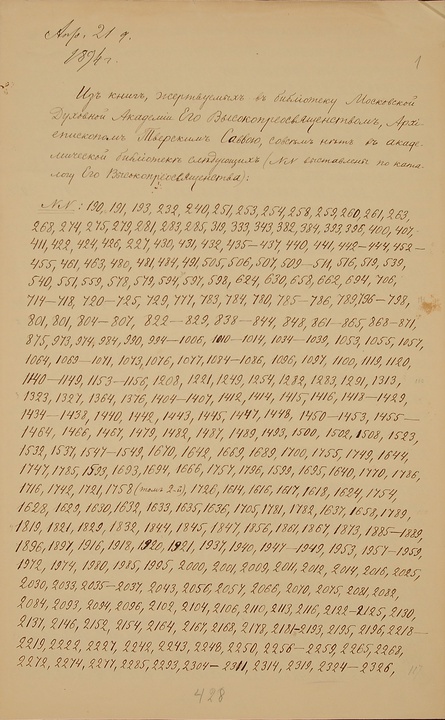 Апр. 21 д.
1894 г.
1
Изъ книгъ, жертвуемыхъ въ библіотеку Московской
Духовной Академіи Его Высокопреосвященствомъ, Архі-
епископомъ Тверскимъ Саввою, совсѣмъ нѣтъ въ акаде-
мической библіотекѣ слѣдующихъ (№№ выставлены по ката-
логу Его Высокопреосвященства):
№№: 190, 191, 193, 232, 240, 251, 253, 254, 258, 259, 260, 261, 263,
268, 274, 275, 279, 281, 283, 285, 319, 333, 343, 382, 384, 393, 398, 400, 407,
411, 422, 424, 426, 227, 430, 431, 432, 435—437, 440, 441, 442—444, 452—
455, 461, 463, 480, 481, 484, 491, 505, 506, 507, 509—511, 516, 519, 539,
540, 551, 559, 578, 579, 594, 597, 598, 624, 630, 658, 662, 694, 706,
714—718, 720—725, 729, 777, 783, 784, 780, 785—786, 789, 796—798,
801, 801, 804—807, 822—829, 838—844, 848, 861—865, 868—871,
875, 973, 974, 984, 990, 994—1006, 1010—1014, 1034—1039, 1053, 1055, 1057,
1064, 1069—1071, 1073, 1076, 1077, 1084—1086, 1096, 1097, 1100, 1119, 1120,
1140—1149, 1153—1156, 1208, 1221, 1249, 1254, 1282, 1283, 1291, 1313,
1323, 1327, 1364, 1376, 1404—1407, 1412, 1414, 1415, 1416, 1418—1429,
1434—1438, 1440, 1442, 1443, 1445, 1447, 1448, 1450—1453, 1455—
1464, 1466, 1467, 1479, 1482, 1487, 1489, 1493, 1500, 1502, 1508, 1523,
1532, 1537, 1547—1549, 1670, 1642, 1669, 1689, 1700, 1755, 1749, 1644,
1747, 1785, 1599, 1693, 1694, 1666, 1757, 1796, 1599, 1695, 1640, 1770, 1786,
1716, 1742, 1721, 1758 (томъ 2-й), 1726, 1614, 1616, 1617, 1618, 1624, 1754,
1628, 1629, 1630, 1632, 1633, 1635, 1636, 1705, 1781, 1782, 1637, 1658, 1789,
1819, 1821, 1829, 1832, 1844, 1845, 1847, 1856, 1861, 1867, 1873, 1885—1889,
1896, 1897, 1916, 1918, 1920, 1921, 1937, 1940, 1947—1949, 1953, 1957—1959,
1972, 1974, 1980, 1985, 1995, 2000, 2001, 2009, 2011, 2012, 2014, 2016, 2025,
2030, 2033, 2035—2037, 2043, 2056, 2057, 2066, 2070, 2075, 2081, 2082,
2084, 2093, 2094, 2096, 2102, 2104, 2106, 2110, 2113, 2116, 2122—2125, 2130,
2137, 2146, 2152, 2154, 2164, 2167, 2168, 2178, 2181—2193, 2195, 2196, 2218—
2219, 2222, 2227, 2242, 2243, 2248, 2250, 2256—2259, 2265, 2268,
2272, 2274, 2277, 2285, 2293, 2304—2311, 2314, 2319, 2324—2326,
428